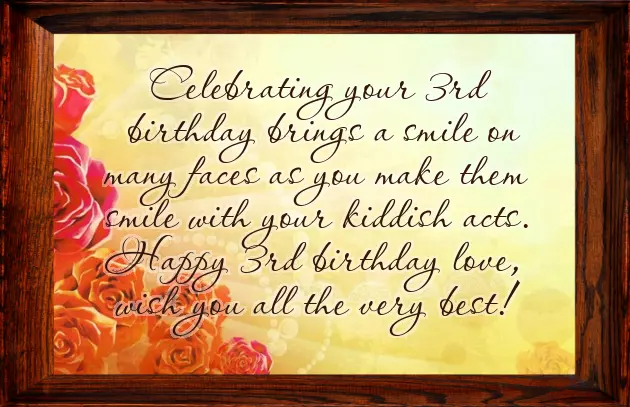 Celebrating your 3rd
birthday brings a smile on
many faces as you make them
smile with your kiddish acts.
Happy 3rd birthday love,
wish you all the very best!